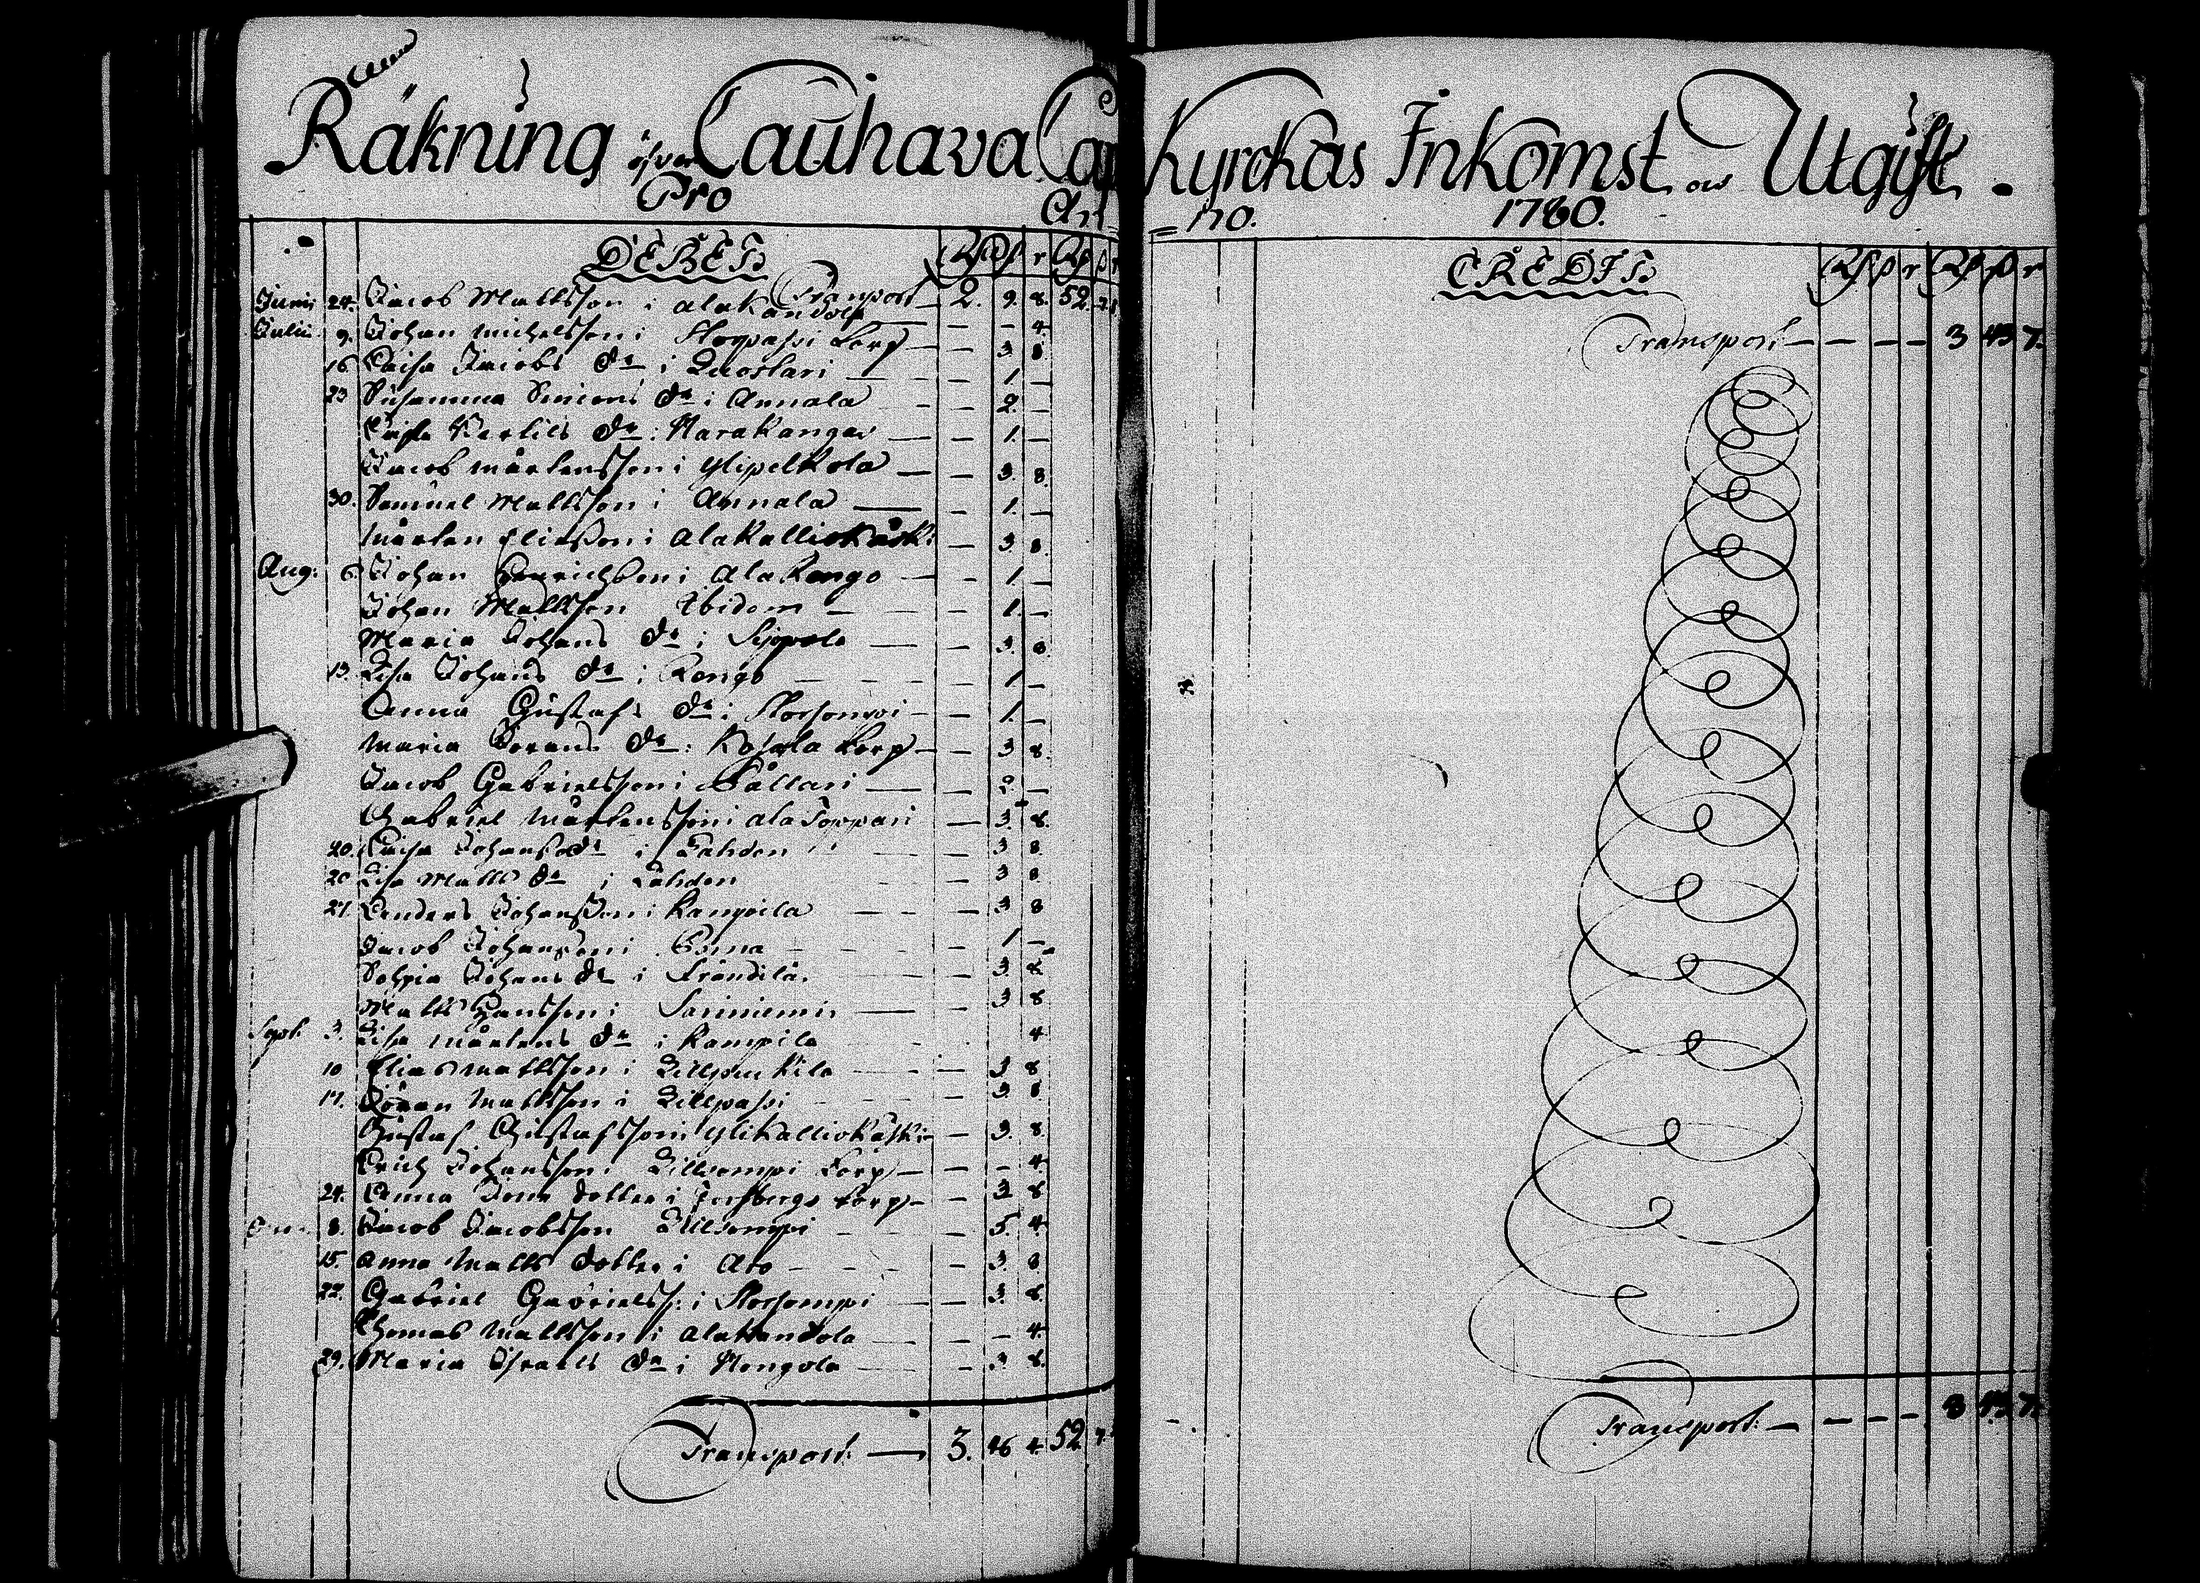 Räkning öfver Cauhava Cap Kyrckas Inkomst o. Utgift.
Pro An= =no. 1780.
DEBET. Rd ß r Rd ß r
Transport 2. 9. 8. 52.
Junii 24. Jacob Mattsson i Alakandola — — 4.
Julii 9. Johan Michelsson i Storpassi torp — — 3 8
16 Caisa Jacobs dr i Luoslari — — 1. —
23 Susanna Simons dr i Annala — — 2. —
Caisa Bertils dr i Harakangas — — 1. —
Jacob Mårtensson i Ylipelkola — — 3. 8.
30. Samuel Mattsson i Annala — — 1. —
Mårten Eliesson i Alakalliokåski — 3. 8.
Aug: 6 Johan Henrichsson i Alakengo — — 1. —
Johan Mattsson Ibidem — — 1. —
Maria Johans dr i Sippola — — 3. 8.
13. Lisa Johans dr i Rengo — — 1 —
Anna Gustafs dr i Storsompi — — 1. —
Maria Görans dr i Kosola torp — — 3 8.
Jacob Gabrielsson i Pållari — — 2. —
Gabriel Mårtensson i Ala Toppari — 3. 8.
20. Caisa Johans dr i Lahden — — 3 8.
20 Lisa Matts dr i Lahden — 3 8.
27. Anders Johansson i Kampila — — 3 8
Jacob Johansson i — — 1 —
Sophia Johans dr i Frändilä. — — 3. 8.
Matts Hansson i Sariniemi — — 3 8
Sept: 3. Lisa Mårtens dr i Kampila 4
10 Elias Mattsson i — — 3 8
17. Göran Mattsson i Lillpassi — 3. 8
Gustaf Gustafsson i Ylikalliokåski — — 3. 8.
Erich Johansson i Lillsompi torp — — — 4.
24. Anna Jons dotter i Forsbergs torp — — 3 8
8. Jacob Jacobsson Lillsompi — — 5. 4.
15. Anna Matts dotter i Ato — — 3. 8.
22. Gabriel Gabrielss: i Storsompi — — 3. 8.
Thomas Mattsson i Alakandola — — — 4.
29. Maria Israels dr i Hengola — — 3. 8.
Transport: — 3. 46 4. 52
CREDIT. Rd ß r Rd ß r
Transport — — — — 3 43 7.
Transport: — — — — 3 43 7.